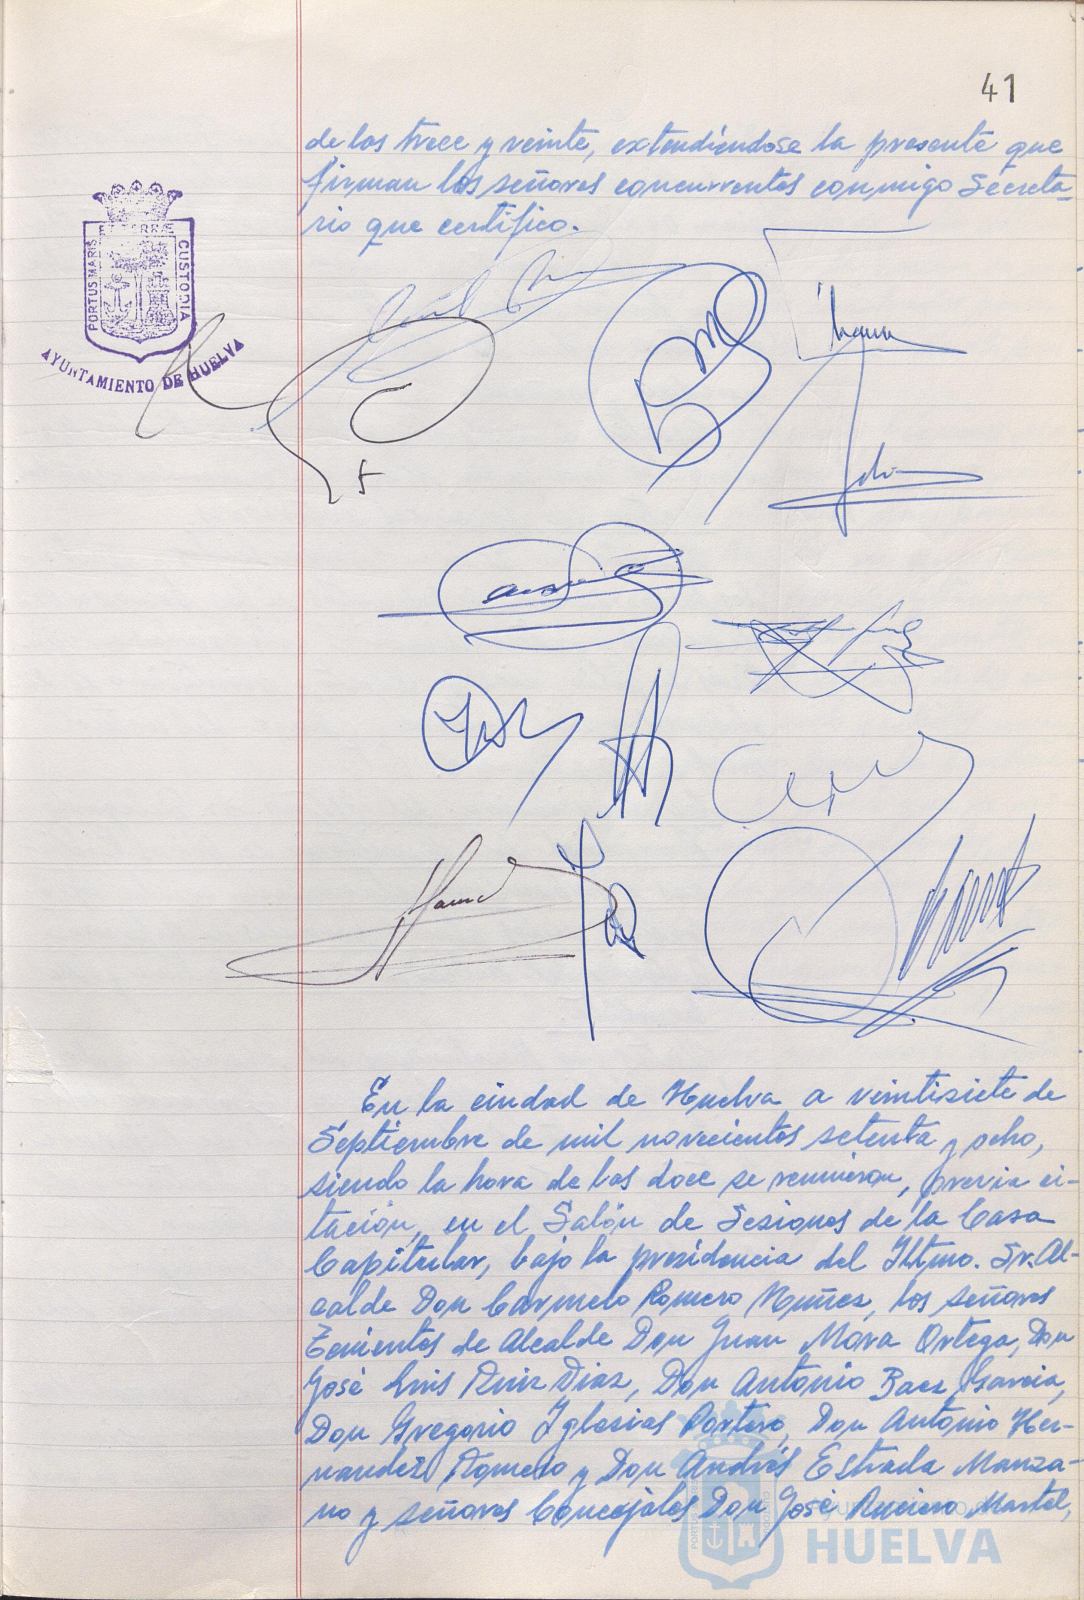 41
de las trece y veinte, extendiéndose la presente que
firman los señores concurrentes conmigo Secreta-
rio que certifico.
PORTUS MARIS ET TERRAE CUSTODIA
AYUNTAMIENTO DE HUELVA
En la ciudad de Huelva a veintisiete de
Septiembre de mil novecientos setenta y ocho,
siendo la hora de las doce se reunieron, previa ci-
tación, en el Salón de Sesiones de la Casa
Capitular, bajo la presidencia del Iltmo. Sr. Al-
calde Don Carmelo Romero Nuñez, los señores
Tenientes de Alcalde Don Juan Mora Ortega, Don
José Luis Ruiz Diaz, Don Antonio Baez Garcia,
Don Gregorio Iglesias Portero, Don Antonio Her-
nandez Romero y Don Andrés Estrada Manza-
no y señores Concejales Don José Martel,
HUELVA